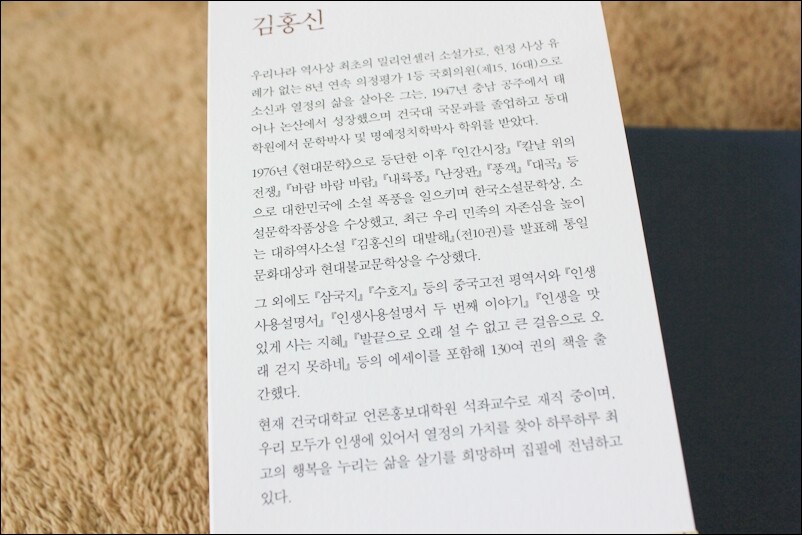 김홍신
우리나라 역사상 최초의 밀리언셀러 소설가로, 헌정 사상 유
례가 없는 8년 연속 의정평가 1등 국회의원(제15, 16대)으로
소신과 열정의 삶을 살아온 그는, 1947년 충남 공주에서 태
어나 논산에서 성장했으며 건국대 국문과를 졸업하고 동대
학원에서 문학박사 및 명예정치학박사 학위를 받았다.
1976년 《현대문학》으로 등단한 이후 『인간시장』 『칼날 위의
전쟁』 『바람 바람 바람』 『내륙풍』 『난장판』 『풍객』 『대곡』 등
으로 대한민국에 소설 폭풍을 일으키며 한국소설문학상, 소
설문학작품상을 수상했고, 최근 우리 민족의 자존심을 높이
는 대하역사소설 『김홍신의 대발해』(전10권)를 발표해 통일
문화대상과 현대불교문학상을 수상했다.
그 외에도 『삼국지』 『수호지』 등의 중국고전 평역서와 『인생
사용설명서』 『인생사용설명서 두 번째 이야기』 『인생을 맛
있게 사는 지혜』 『발끝으로 오래 설 수 없고 큰 걸음으로 오
래 걷지 못하네』 등의 에세이를 포함해 130여 권의 책을 출
간했다.
현재 건국대학교 언론홍보대학원 석좌교수로 재직 중이며,
우리 모두가 인생에 있어서 열정의 가치를 찾아 하루하루 최
고의 행복을 누리는 삶을 살기를 희망하며 집필에 전념하고
있다.